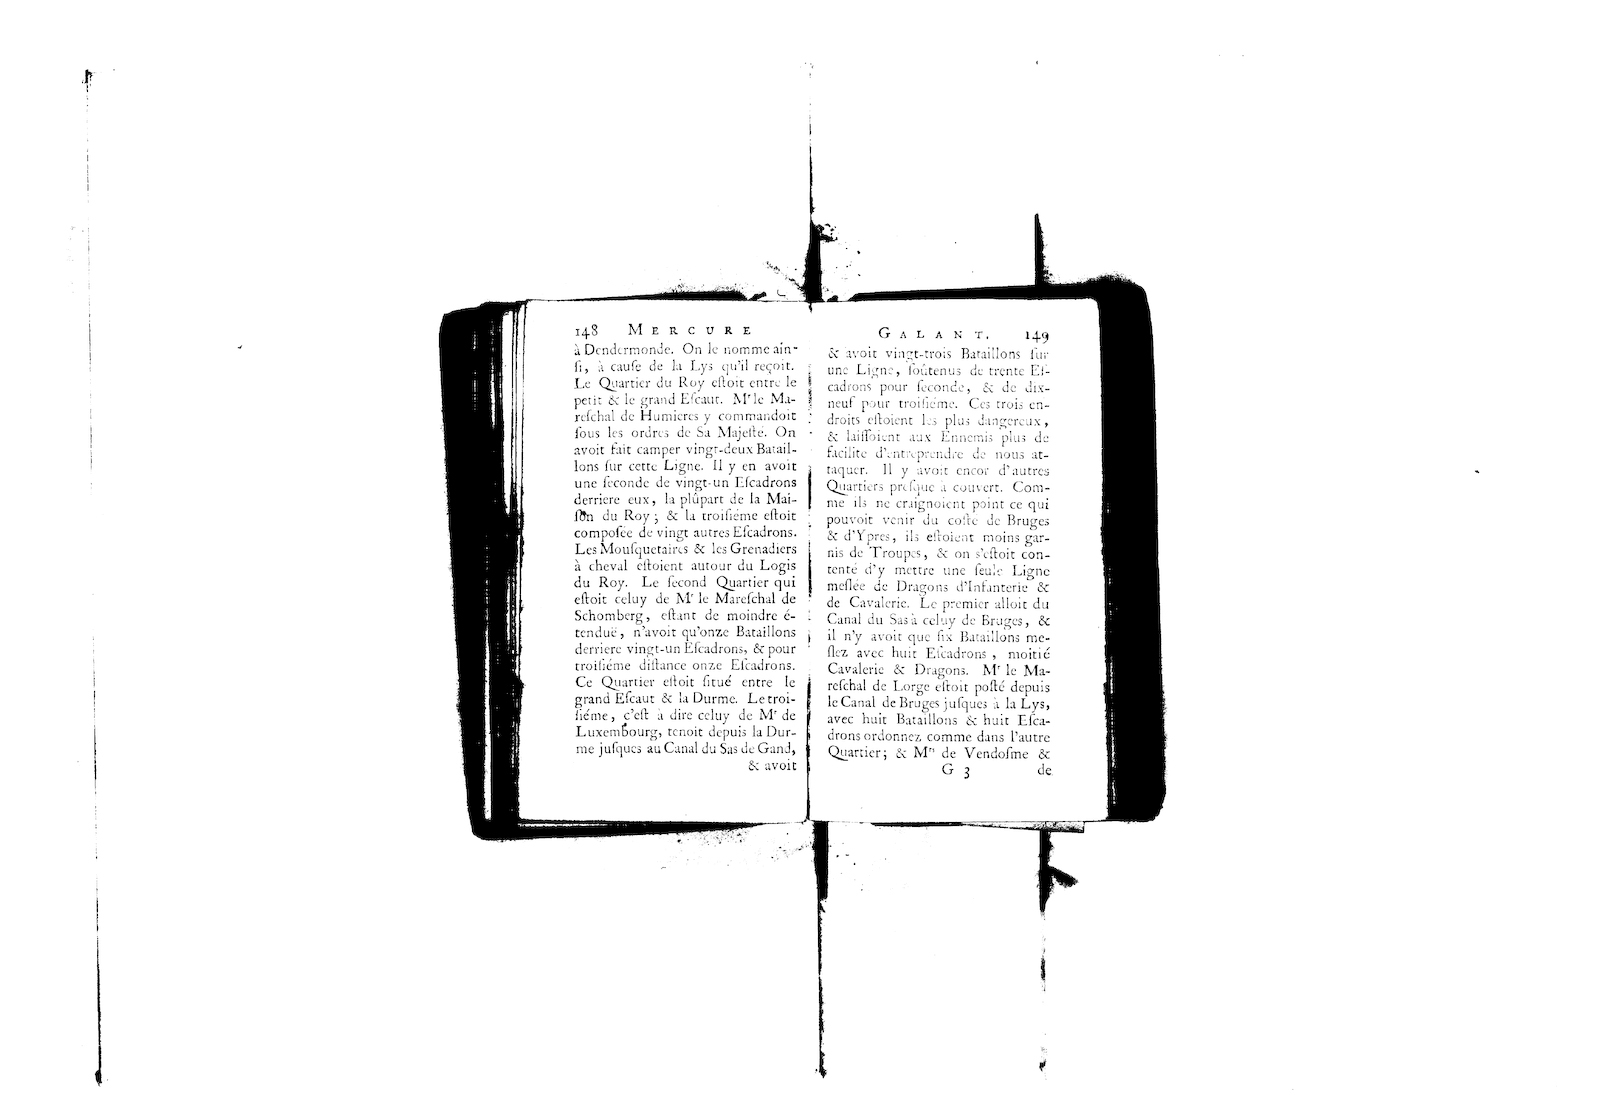 148 MERCURE
à Dendermonde. On le nomme ain-
ſi, à cauſe de la Lys qu'il reçoit.
Le Quartier du Roy eſtoit entre le
petit & le grand Eſcaut. Mr le Ma-
reſchal de Humieres y commandoit
ſous les ordres de Sa Majeſté. On
avoit fait camper vingt-deux Batail-
lons ſur cette Ligne. Il y en avoit
une ſeconde de vingt-un Eſcadrons
derriere eux, la plûpart de la Mai-
ſon du Roy; & la troiſiéme eſtoit
compoſée de vingt autres Eſcadrons.
Les Mouſquetaires & les Grenadiers
à cheval eſtoient autour du Logis
du Roy. Le ſecond Quartier qui
eſtoit celuy de Mr le Mareſchal de
Schomberg, eſtant de moindre é-
tenduë, n'avoit qu'onze Bataillons
derriere vingt-un Eſcadrons, & pour
troiſiéme diſtance onze Eſcadrons.
Ce Quartier eſtoit ſitué entre le
grand Eſcaut & la Durme. Le troi-
ſiéme, c'eſt à dire celuy de Mr de
Luxembourg, tenoit depuis la Dur-
me juſques au Canal du Sas de Gand,
& avoit
GALANT. 149
& avoit vingt-trois Bataillons ſur
une Ligne, ſoûtenus de trente Eſ-
cadrons pour ſeconde, & de dix-
neuf pour troiſiéme. Ces trois en-
droits eſtoient les plus dangereux,
& laiſſoient aux Ennemis plus de
facilité d'entreprendre de nous at-
taquer. Il y avoit encor d'autres
Quartiers preſque à couvert. Com-
me ils ne craignoient point ce qui
pouvoit venir du coſté de Bruges
& d'Ypres, ils eſtoient moins gar-
nis de Troupes, & on s'eſtoit con-
tenté d'y mettre une ſeule Ligne
meſlée de Dragons d'Infanterie &
de Cavalerie. Le premier alloit du
Canal du Sas à celuy de Bruges, &
il n'y avoit que ſix Bataillons me-
ſlez avec huit Eſcadrons, moitié
Cavalerie & Dragons. Mr le Ma-
reſchal de Lorge eſtoit poſté depuis
le Canal de Bruges juſques à la Lys,
avec huit Bataillons & huit Eſca-
drons ordonnez comme dans l'autre
Quartier; & Mrs de Vendoſme &
G 3 de